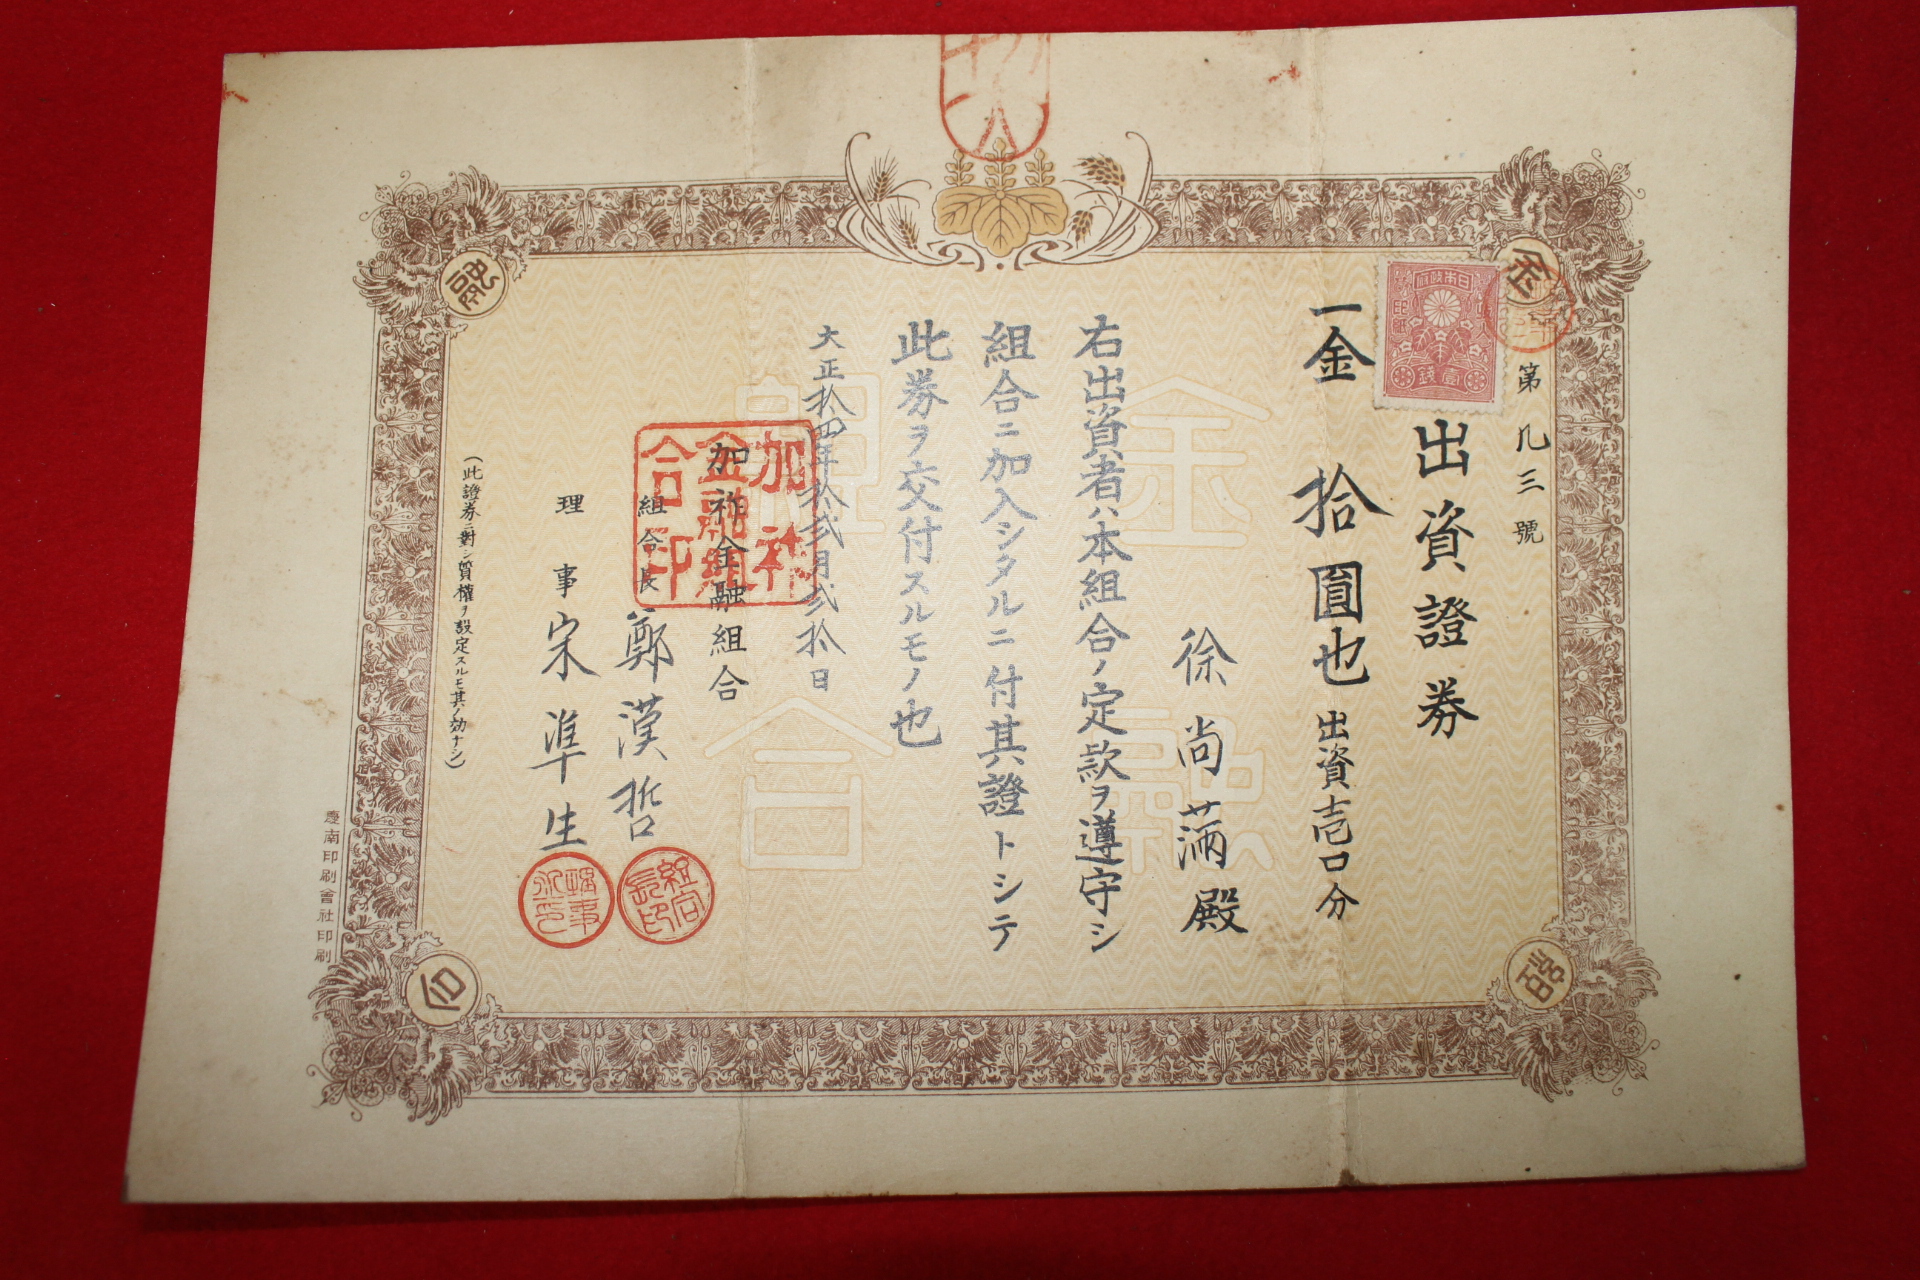 第九三號
出資證券
一金拾圓也 出資壱口分
徐尚蒲殿
右出資者ハ本組合ノ定款ヲ遵守シ
組合ニ加入シタルニ付其證トシテ
此券ヲ交付スルモノ也
大正拾四年拾弐月弐拾日
加祚金融組合
組合長 鄭漢哲
理事 宋準生
(此證券ニ對シ質權ヲ設定スルモ其ノ効ナシ)
慶南印刷會社印刷
日本政府
壹錢
金
融
組
合
加祚
金融組
合印
組合
長印
理事
之印